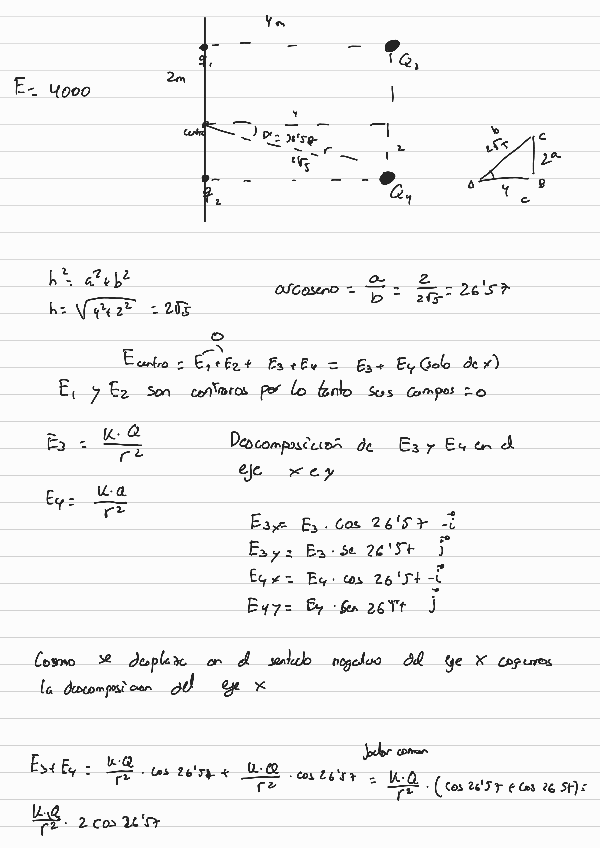 4m
E = 4000
2m
q1
Q3
centro
4
α = 26'57
r
2√5
2
q2
Q4
b
2√5
C
2a
A
4
B
c
h² = a² + b²
h = √4²+2² = 2√5
arcoseno = a/b = 2/2√5 = 26'57
0
Ecentro = E1 + E2 + E3 + E4 = E3 + E4 (solo de x)
E1 y E2 son contraros por lo tanto sus campos = 0
E3 = K·Q/r²
Descomposición de E3 y E4 en el
eje x e y
E4 = K·Q/r²
E3x = E3 · cos 26'57 -i
E3y = E3 · se 26'57 j
E4x = E4 · cos 26'57 -i
E4y = E4 · sen 26'57 j
Como se desplaza en el sentido negativo del eje x cogemos
la descomposicion del eje x
factor comun
E3 + E4 = K·Q/r² · cos 26'57 + K·Q/r² · cos 26'57 = K·Q/r² · (cos 26'57 + cos 26 57) =
K·Q/r² · 2 cos 26'57